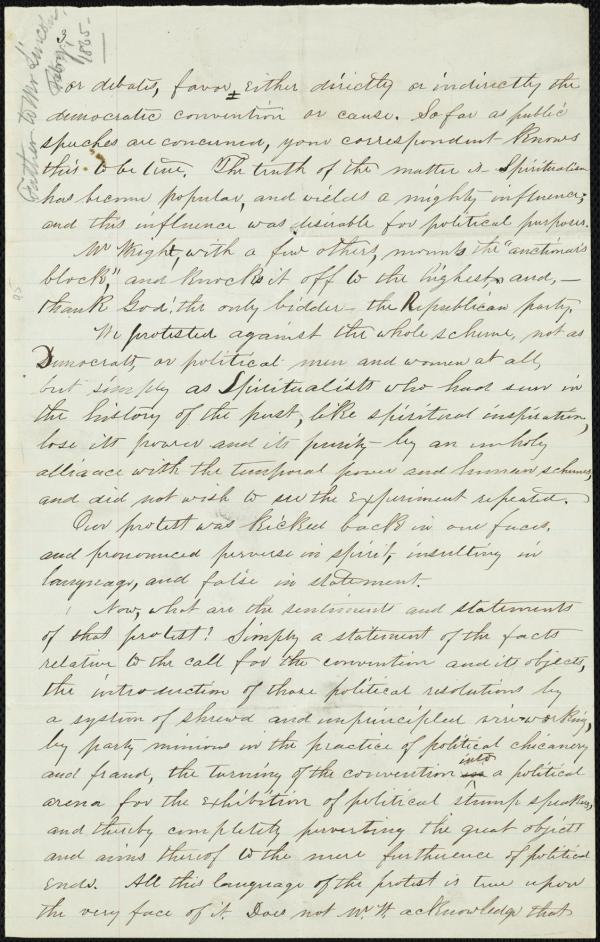 3
Further to Mr Lincoln,
Feby, 1865.
or debates, favor, either directly or indirectly the
democratic convention or cause. So far as public
speeches are concerned, your correspondent knows
this to be true. The truth of the matter is Spiritualism
has become popular, and wields a mighty influence;
and this influence was desirable for political purposes.
Mr Wright, with a few others, mounts the "auctionair's
block," and knocks it off to the highest, and, —
thank God! the only bidder — the Republican party.
We protested against the whole scheme, not as
Democrats, or political men and women at all,
but simply as Spiritualists who had seen in
the history of the past, like spiritual inspiration,
lose its power and its purity by an unholy
alliance with the temporal power and human schemes,
and did not wish to see the experiment repeated.
Our protest was kicked back in our faces,
and pronounced perverse in spirit, insulting in
language, and false in statement.
Now, what are the sentiments and statements
of that protest? Simply a statement of the facts
relative to the call for the convention and its objects,
the introduction of those political resolutions by
a system of shrewd and unprincipled wire-working,
by party minions in the practice of political chicanery
and fraud, the turning of the convention into a political
arena for the exhibition of political stump speakers,
and thereby completely perverting the great objects
and aims thereof to the mere furtherence of political
ends. All this language of the protest is true upon
the very face of it. Does not Mr. W. acknowledge that